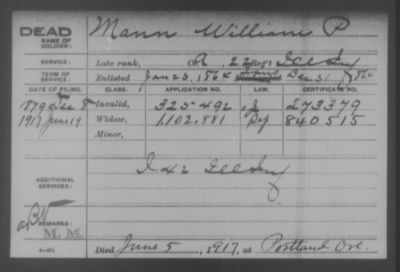 DEAD Mann William P
NAME OF SOLDIER:
SERVICE: Late rank, Co. A, 22 Reg't Ill Inf
TERM OF SERVICE: Enlisted Jan 23, 1864 Dec 31 1864
DATE OF FILING. CLASS. APPLICATION NO. LAW. CERTIFICATE NO.
1879 Dec 8 Invalid, 325492 273379
1917 June 19 Widow, 1,102,881 840515
Minor,
ADDITIONAL SERVICES: I 42 Ill Inf
REMARKS:
M. M.
Died June 5, 1917, at Portland Ore.